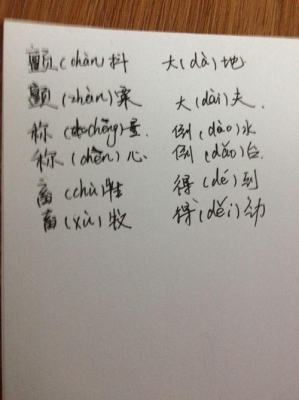 颤(chàn)抖 大(dà)地
颤(zhàn)栗 大(dài)夫.
称(chēng)量 倒(dào)水
称(chèn)心 倒(dǎo)台
畜(chù)牲 得(dé)到
畜(xù)牧 得(děi)劲